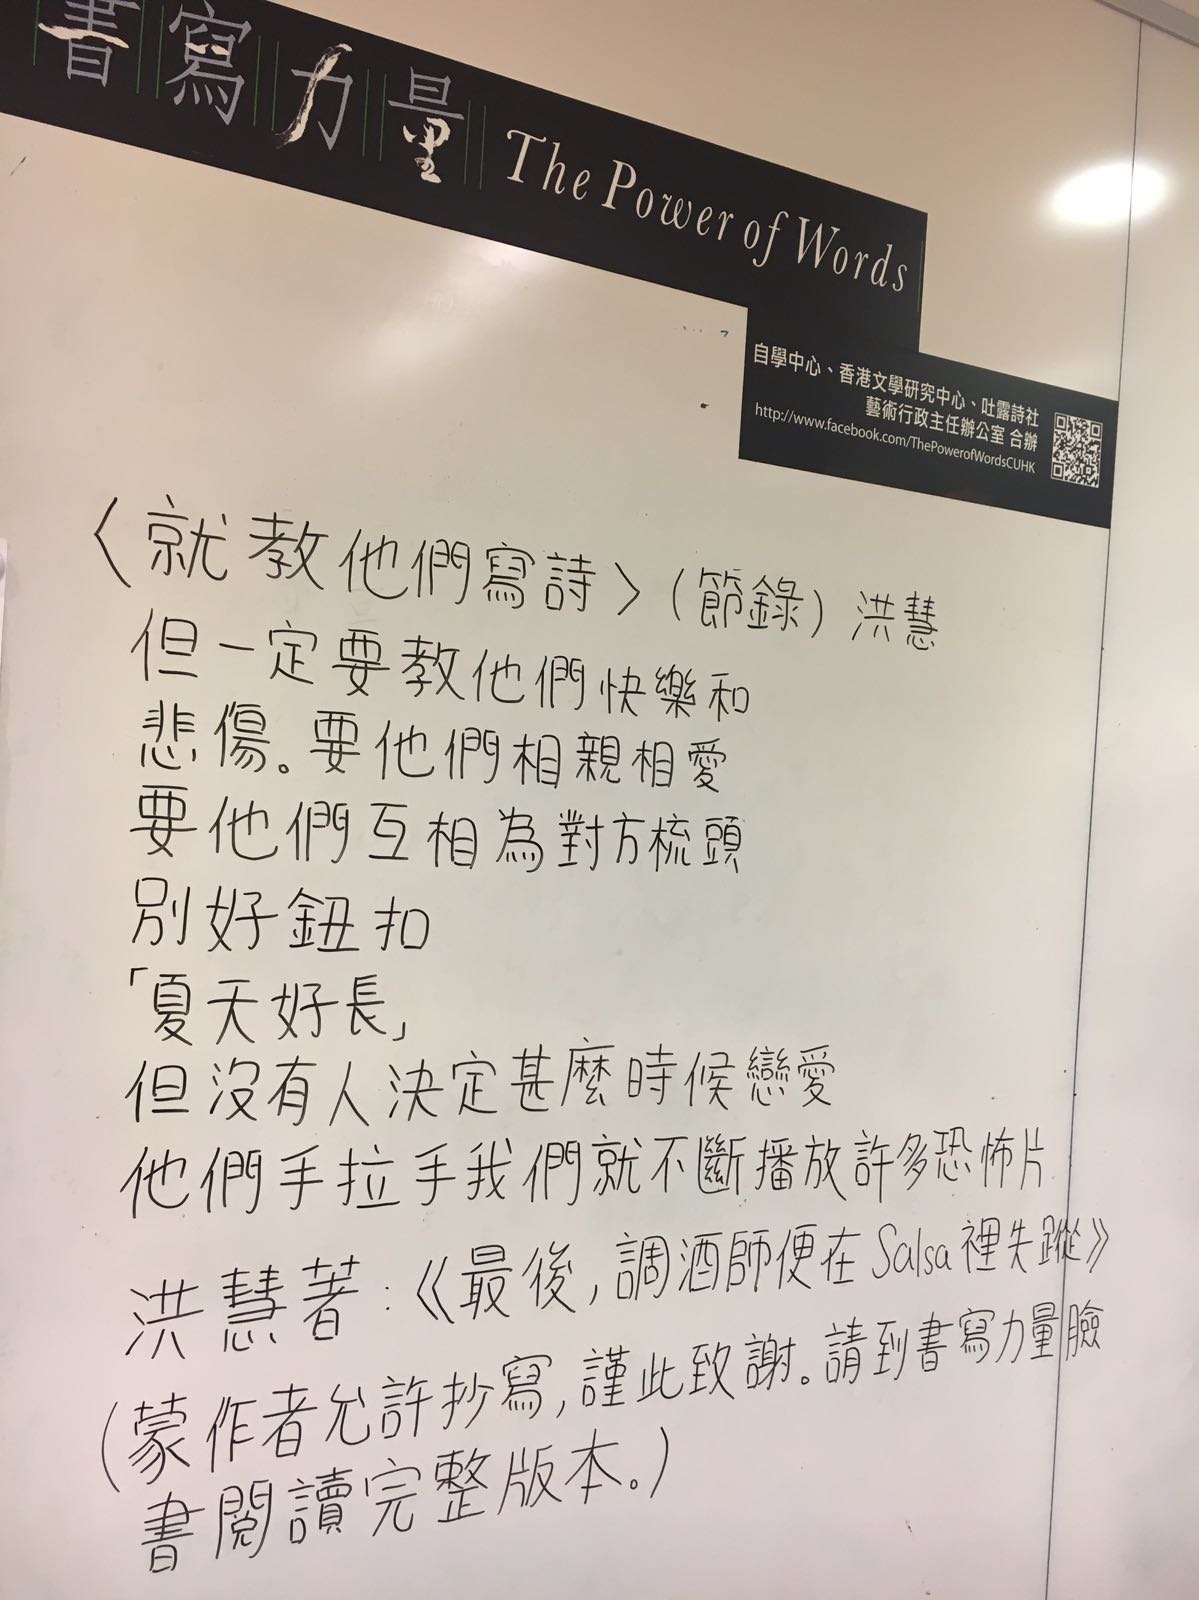 書寫力量 The Power of Words
自學中心、香港文學研究中心、吐露詩社
藝術行政主任辦公室 合辦
http://www.facebook.com/ThePowerofWordsCUHK
〈就教他們寫詩〉(節錄) 洪慧
但一定要教他們快樂和
悲傷。要他們相親相愛
要他們互相為對方梳頭
別好鈕扣
「夏天好長」
但沒有人決定甚麼時候戀愛
他們手拉手我們就不斷播放許多恐怖片
洪慧著：《最後,調酒師便在Salsa裡失蹤》
(蒙作者允許抄寫,謹此致謝。請到書寫力量臉
書閱讀完整版本。)